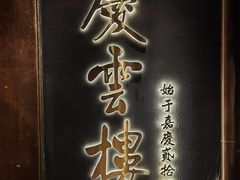 慶雲樓
始于嘉慶貳拾